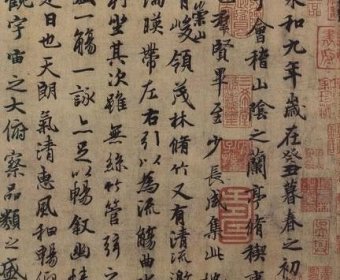 永和九年歲在癸丑暮春之初
于會稽山陰之蘭亭脩稧
也群賢畢至少長咸集此地
有崇山峻領茂林脩竹又有清流激
湍暎帶左右引以為流觴曲
列坐其次雖無絲竹管弦之
一觴一詠亦足以暢敘幽情
是日也天朗氣清惠風和暢仰
觀宇宙之大俯察品類之盛